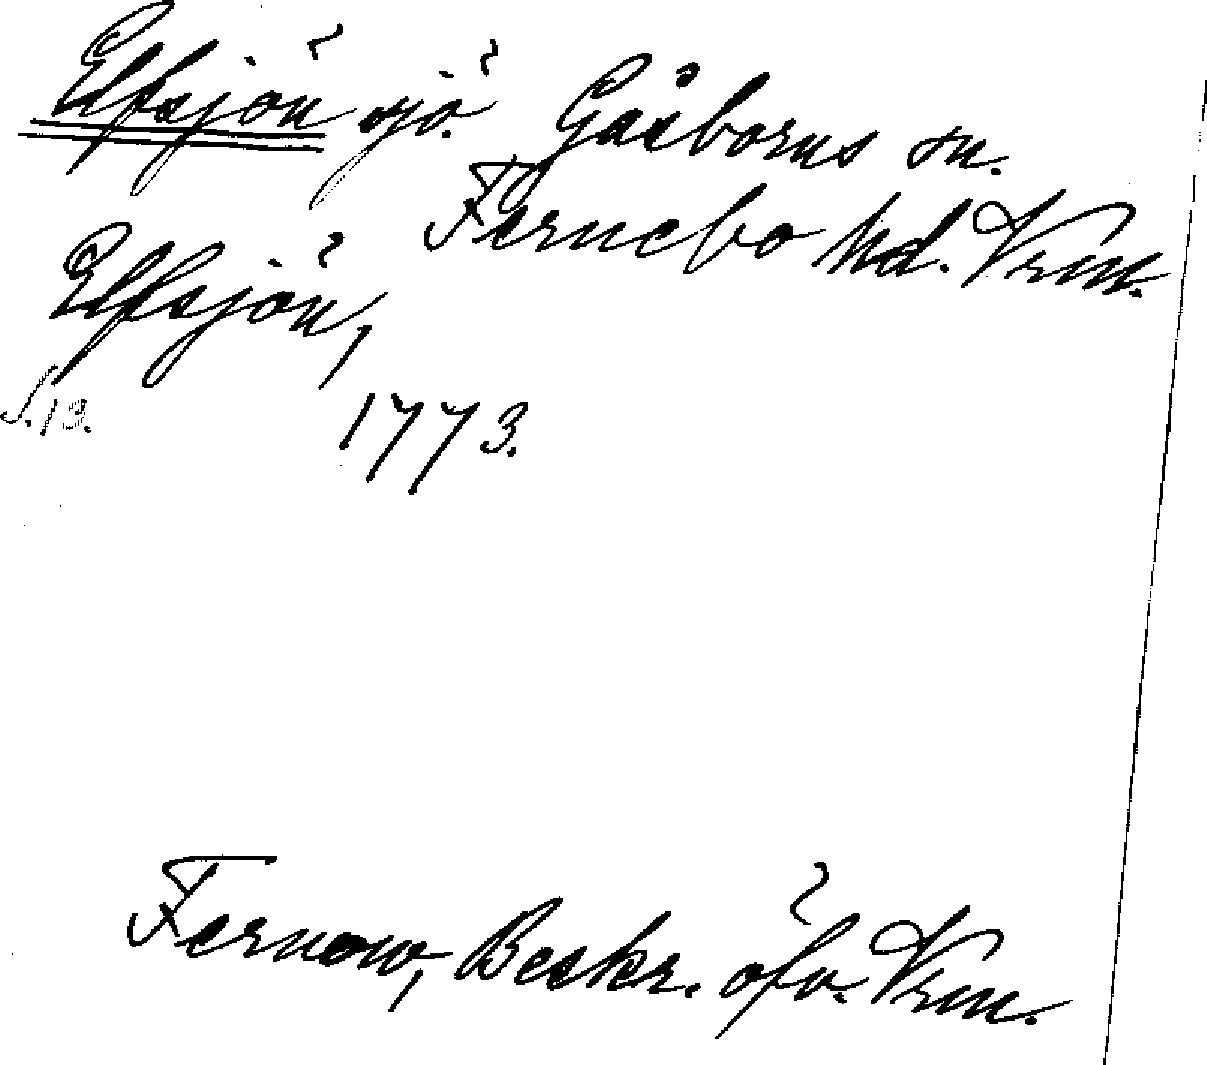 Elfsjön sjö. Gåsborns sn.
Fernebo hd. Vrm.
Elfsjön,
S. 13.
1773.
Fernow, Beskr. öfv. Vrm.